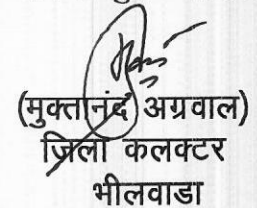 (मुक्तानंद अग्रवाल)
ज़िला कलक्टर
भीलवाडा